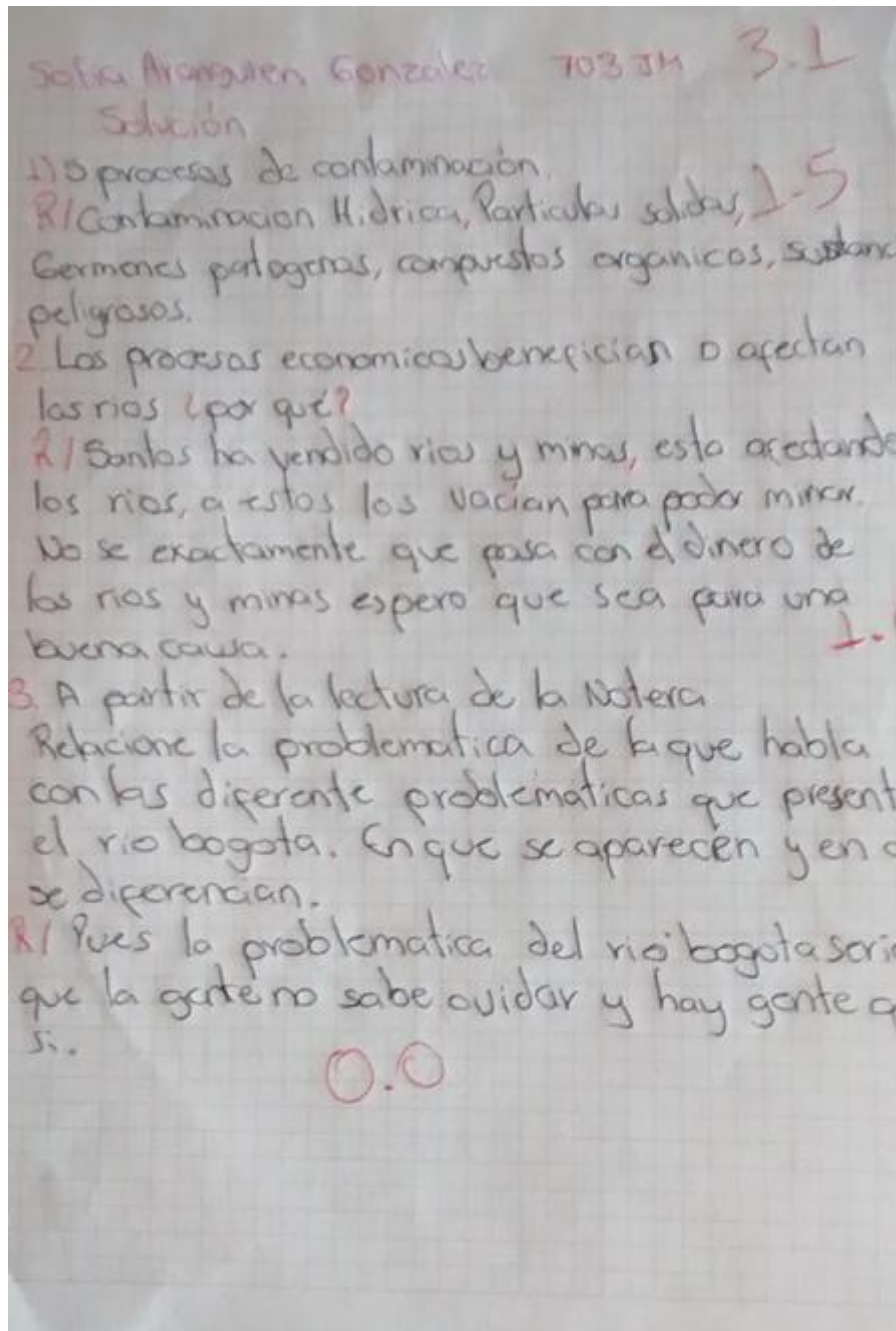 Sofia Aranguren Gonzalez 703 JM 3.1
Solución
1) 5 procesos de contaminación.
R/ Contaminacion Hidrica, Particulas solidas, 1.5
Germenes patogenos, compuestos organicos, sustanc
peligrosos.
2 Los procesos economicos benefician o afectan
los rios ¿por qué?
R/ Santos ha vendido rios y minas, esta afectando
los rios, a estos los vacian para poder minar.
No se exactamente que pasa con el dinero de
los rios y minas espero que sea para una
buena causa. 1.
3. A partir de la lectura de la
Relacione la problematica de la que habla
con las diferente problématicas que present
el rio bogota. En que se aparecen y en
se diferencian.
R/ Pues la problematica del rio bogota seri
que la gente no sabe cuidar y hay gente q
si.
0.0